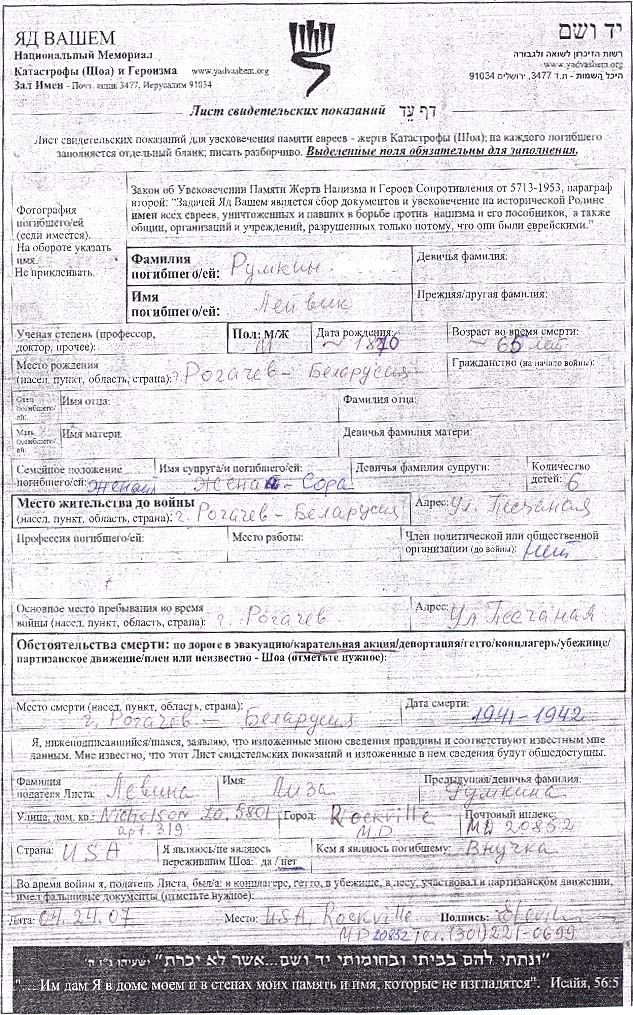 ЯД ВАШЕМ
Национальный Мемориал
Катастрофы (Шоа) и Героизма www.yadvashem.org
Зал Имен - Почт. ящик 3477, Иерусалим 91034
יד ושם
רשות הזיכרון לשואה ולגבורה
www.yadvashem.org
היכל השמות - ת.ד 3477, ירושלים 91034
Лист свидетельских показаний דף עד
Лист свидетельских показаний для увековечения памяти евреев - жертв Катастрофы (Шоа); на каждого погибшего
заполняется отдельный бланк; писать разборчиво. Выделенные поля обязательны для заполнения.
Фотография
погибшего/ей
(если имеется).
На обороте указать
имя.
Не приклеивать.
Закон об Увековечении Памяти Жертв Нацизма и Героев Сопротивления от 5713-1953, параграф
второй: "Задачей Яд Вашем является сбор документов и увековечение на исторической Родине
имен всех евреев, уничтоженных и павших в борьбе против нацизма и его пособников, а также
общин, организаций и учреждений, разрушенных только потому, что они были еврейскими."
Фамилия
погибшего/ей: Румкин
Девичья фамилия:
Имя
погибшего/ей: Лейвик
Прежняя/другая фамилия:
Ученая степень (профессор,
доктор, прочее):
Пол: М/Ж
М
Дата рождения:
~ 1870
Возраст во время смерти:
~ 65 лет
Место рождения
(насел. пункт, область, страна): г. Рогачев - Беларусия
Гражданство (на начало войны):
Отец
погибшего/
ей:
Имя отца:
Фамилия отца:
Мать
погибшего/
ей:
Имя матери:
Девичья фамилия матери:
Семейное положение
погибшего/ей: женат
Имя супруга/и погибшего/ей:
Жена - Сора
Девичья фамилия супруги:
Количество
детей: 6
Место жительства до войны
(насел. пункт, область, страна): г. Рогачев - Беларусия
Адрес: Ул. Песчаная
Профессия погибшего/ей:
Место работы:
Член политической или общественной
организации (до войны): Нет
Основное место пребывания во время
войны (насел. пункт, область, страна): г. Рогачев
Адрес: Ул Песчаная
Обстоятельства смерти: по дороге в эвакуацию/карательная акция/депортация/гетто/концлагерь/убежище/
партизанское движение/плен или неизвестно - Шоа (отметьте нужное):
Место смерти (насел. пункт, область, страна):
г. Рогачев - Беларусия
Дата смерти:
1941-1942
Я, нижеподписавшийся/шаяся, заявляю, что изложенные мною сведения правдивы и соответствуют известным мне
данным. Мне известно, что этот Лист свидетельских показаний и изложенные в нем сведения будут общедоступны.
Фамилия
подателя Листа: Левина
Имя: Лиза
Предыдущая/девичья фамилия:
Румкина
Улица, дом, кв.: Nicholson Ln, 5801
apt. 319
Город: Rockville
MD
Почтовый индекс:
MD 20852
Страна: USA
Я являюсь/не являюсь
пережившим Шоа: да / нет
Кем я являюсь погибшему:
Внучка
Во время войны я, податель Листа, был/а: в концлагере, гетто, в убежище, в лесу, участвовал в партизанском движении,
имел фальшивые документы (отметьте нужное):
Дата: 04.24.07
Место: USA, Rockville
MD 20852
Подпись:
Тел. (301)221-0699
"ונתתי להם בביתי ובחומותי יד ושם...אשר לא יכרת" ישעיהו נ"ו ה'
"... Им дам Я в доме моем и в стенах моих память и имя, которые не изгладятся". Исайя, 56:5